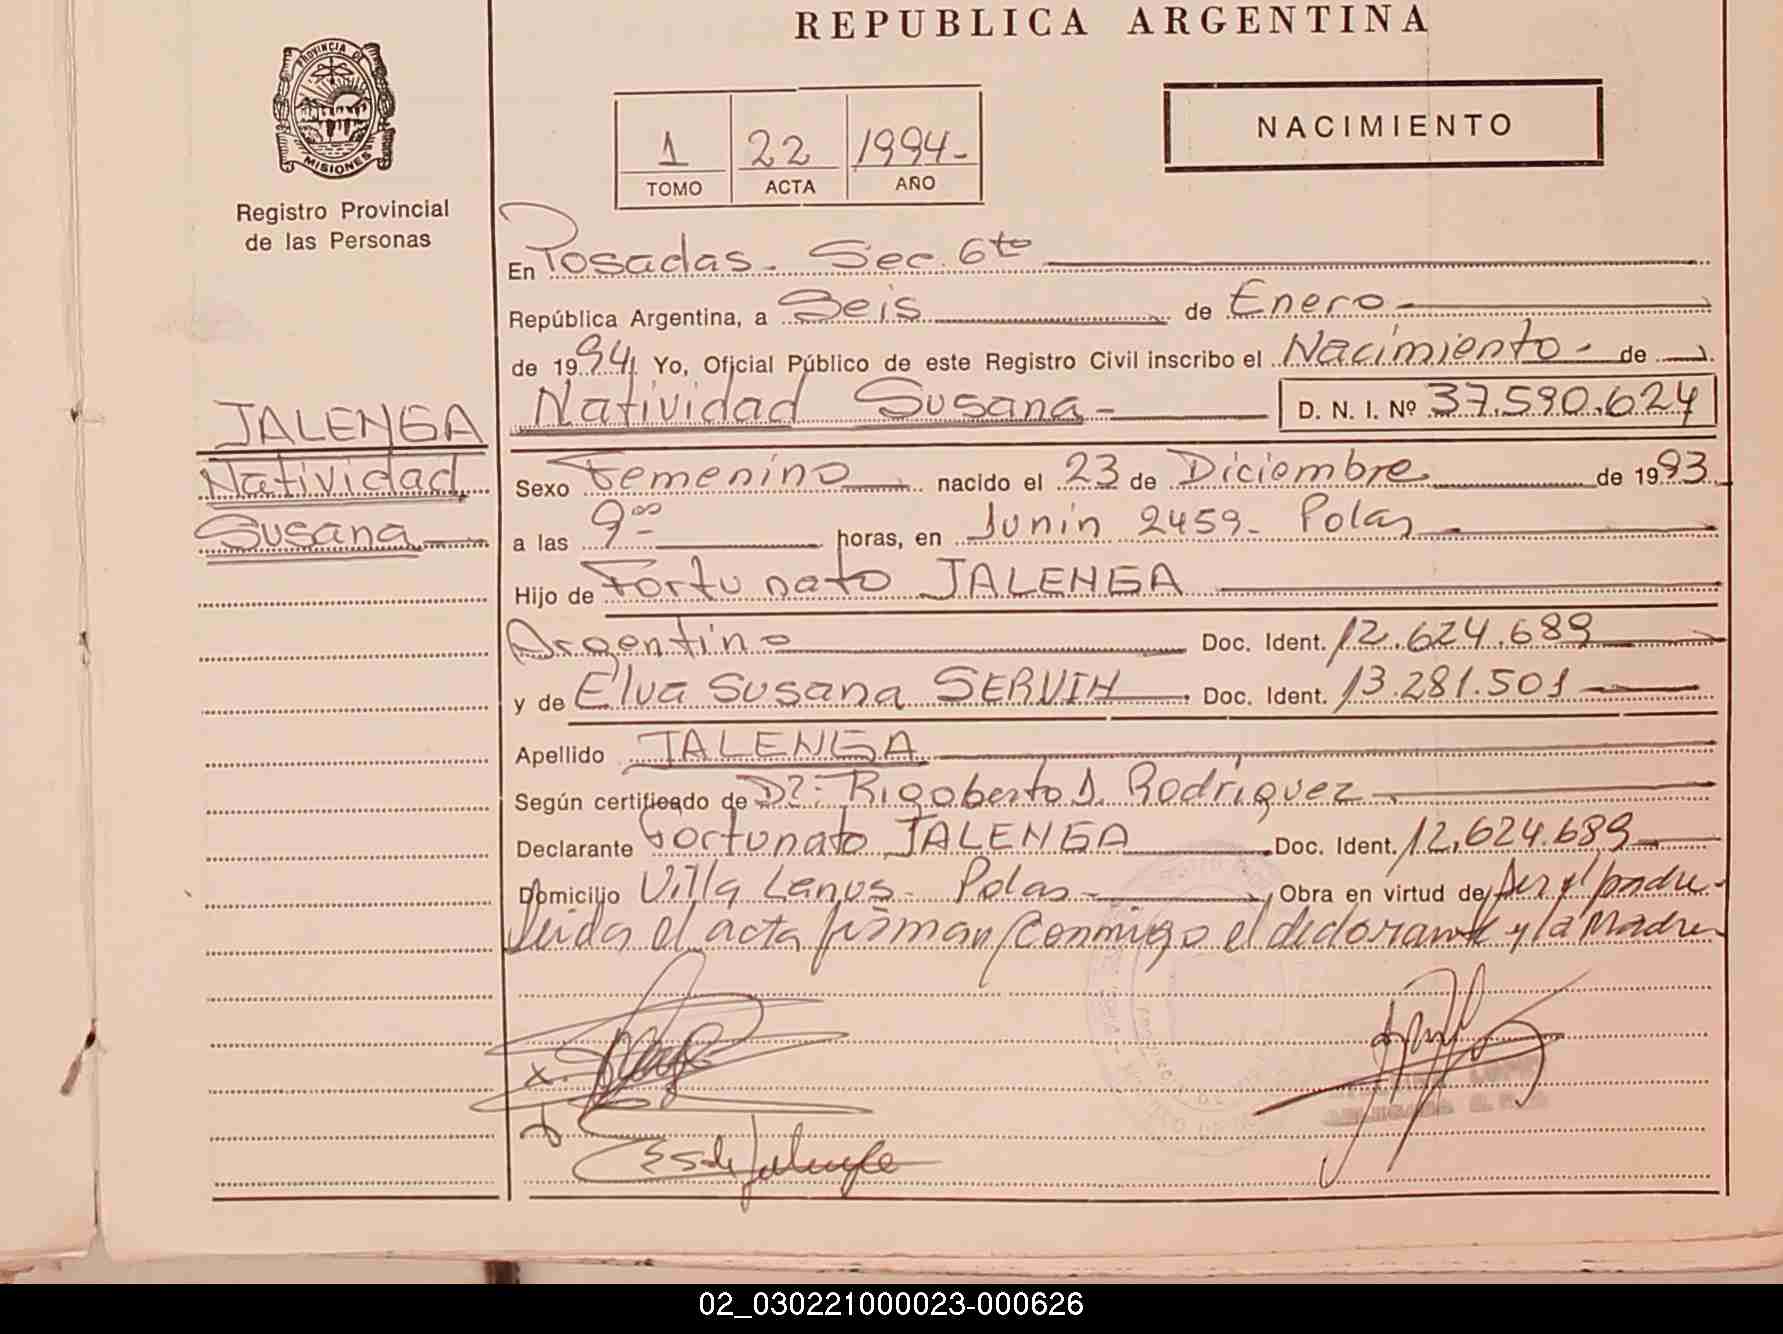 REPUBLICA ARGENTINA
PROVINCIA DE
MISIONES
Registro Provincial
de las Personas
1 22 1994-
TOMO ACTA AÑO
NACIMIENTO
En Posadas. Sec. 6to
República Argentina, a Seis de Enero
de 1994 Yo, Oficial Público de este Registro Civil inscribo el Nacimiento - de
Natividad Susana - D. N. I. Nº 37.590.624
JALENGA
Natividad
Susana
Sexo Femenino nacido el 23 de Diciembre de 1993
a las 9 00 horas, en Junin 2459- Pdas
Hijo de Fortunato JALENGA
Argentino Doc. Ident. 12.624.689
y de Elva Susana SERVIN Doc. Ident. 13.281.501
Apellido JALENGA
Según certificado de Dr: Rigoberto D. Rodriguez
Declarante Fortunato JALENGA Doc. Ident. 12.624.689
Domicilio Villa Lanus - Pdas - Obra en virtud de ser el padre -
Leida el acta firman conmigo el declarante y la Madre
02_030221000023-000626